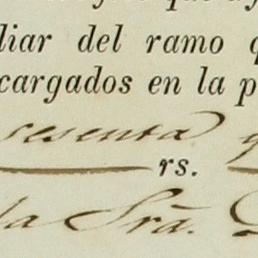 liar del ramo
cargados en la p
sesenta
rs.
la Sra.